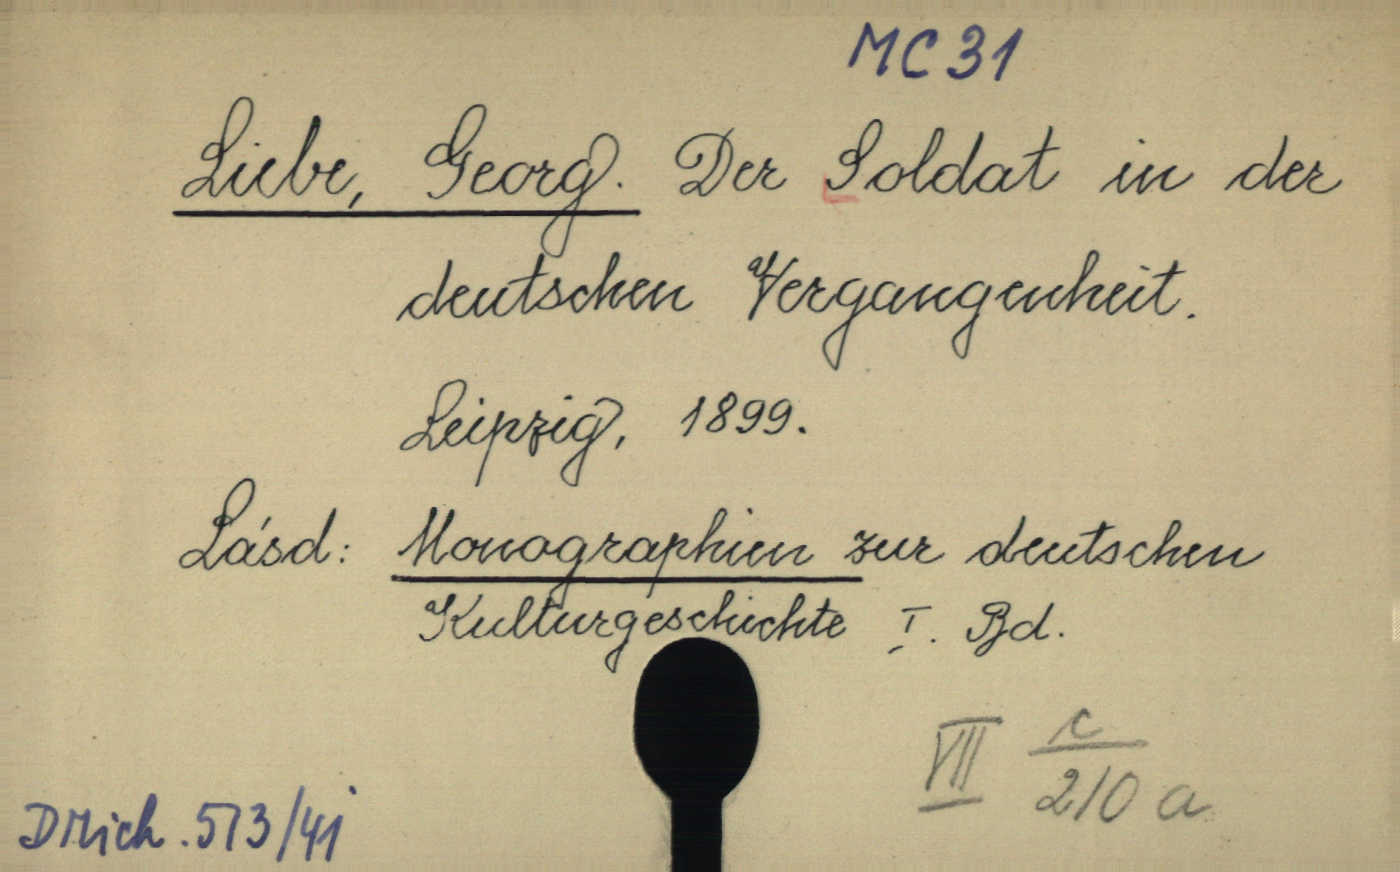 MC 31
Liebe, Georg. Der Soldat in der
deutschen Vergangenheit.
Leipzig, 1899.
Lásd: Monographien zur deutschen
Kulturgeschichte I. Bd.
VII c
210 a
573/41